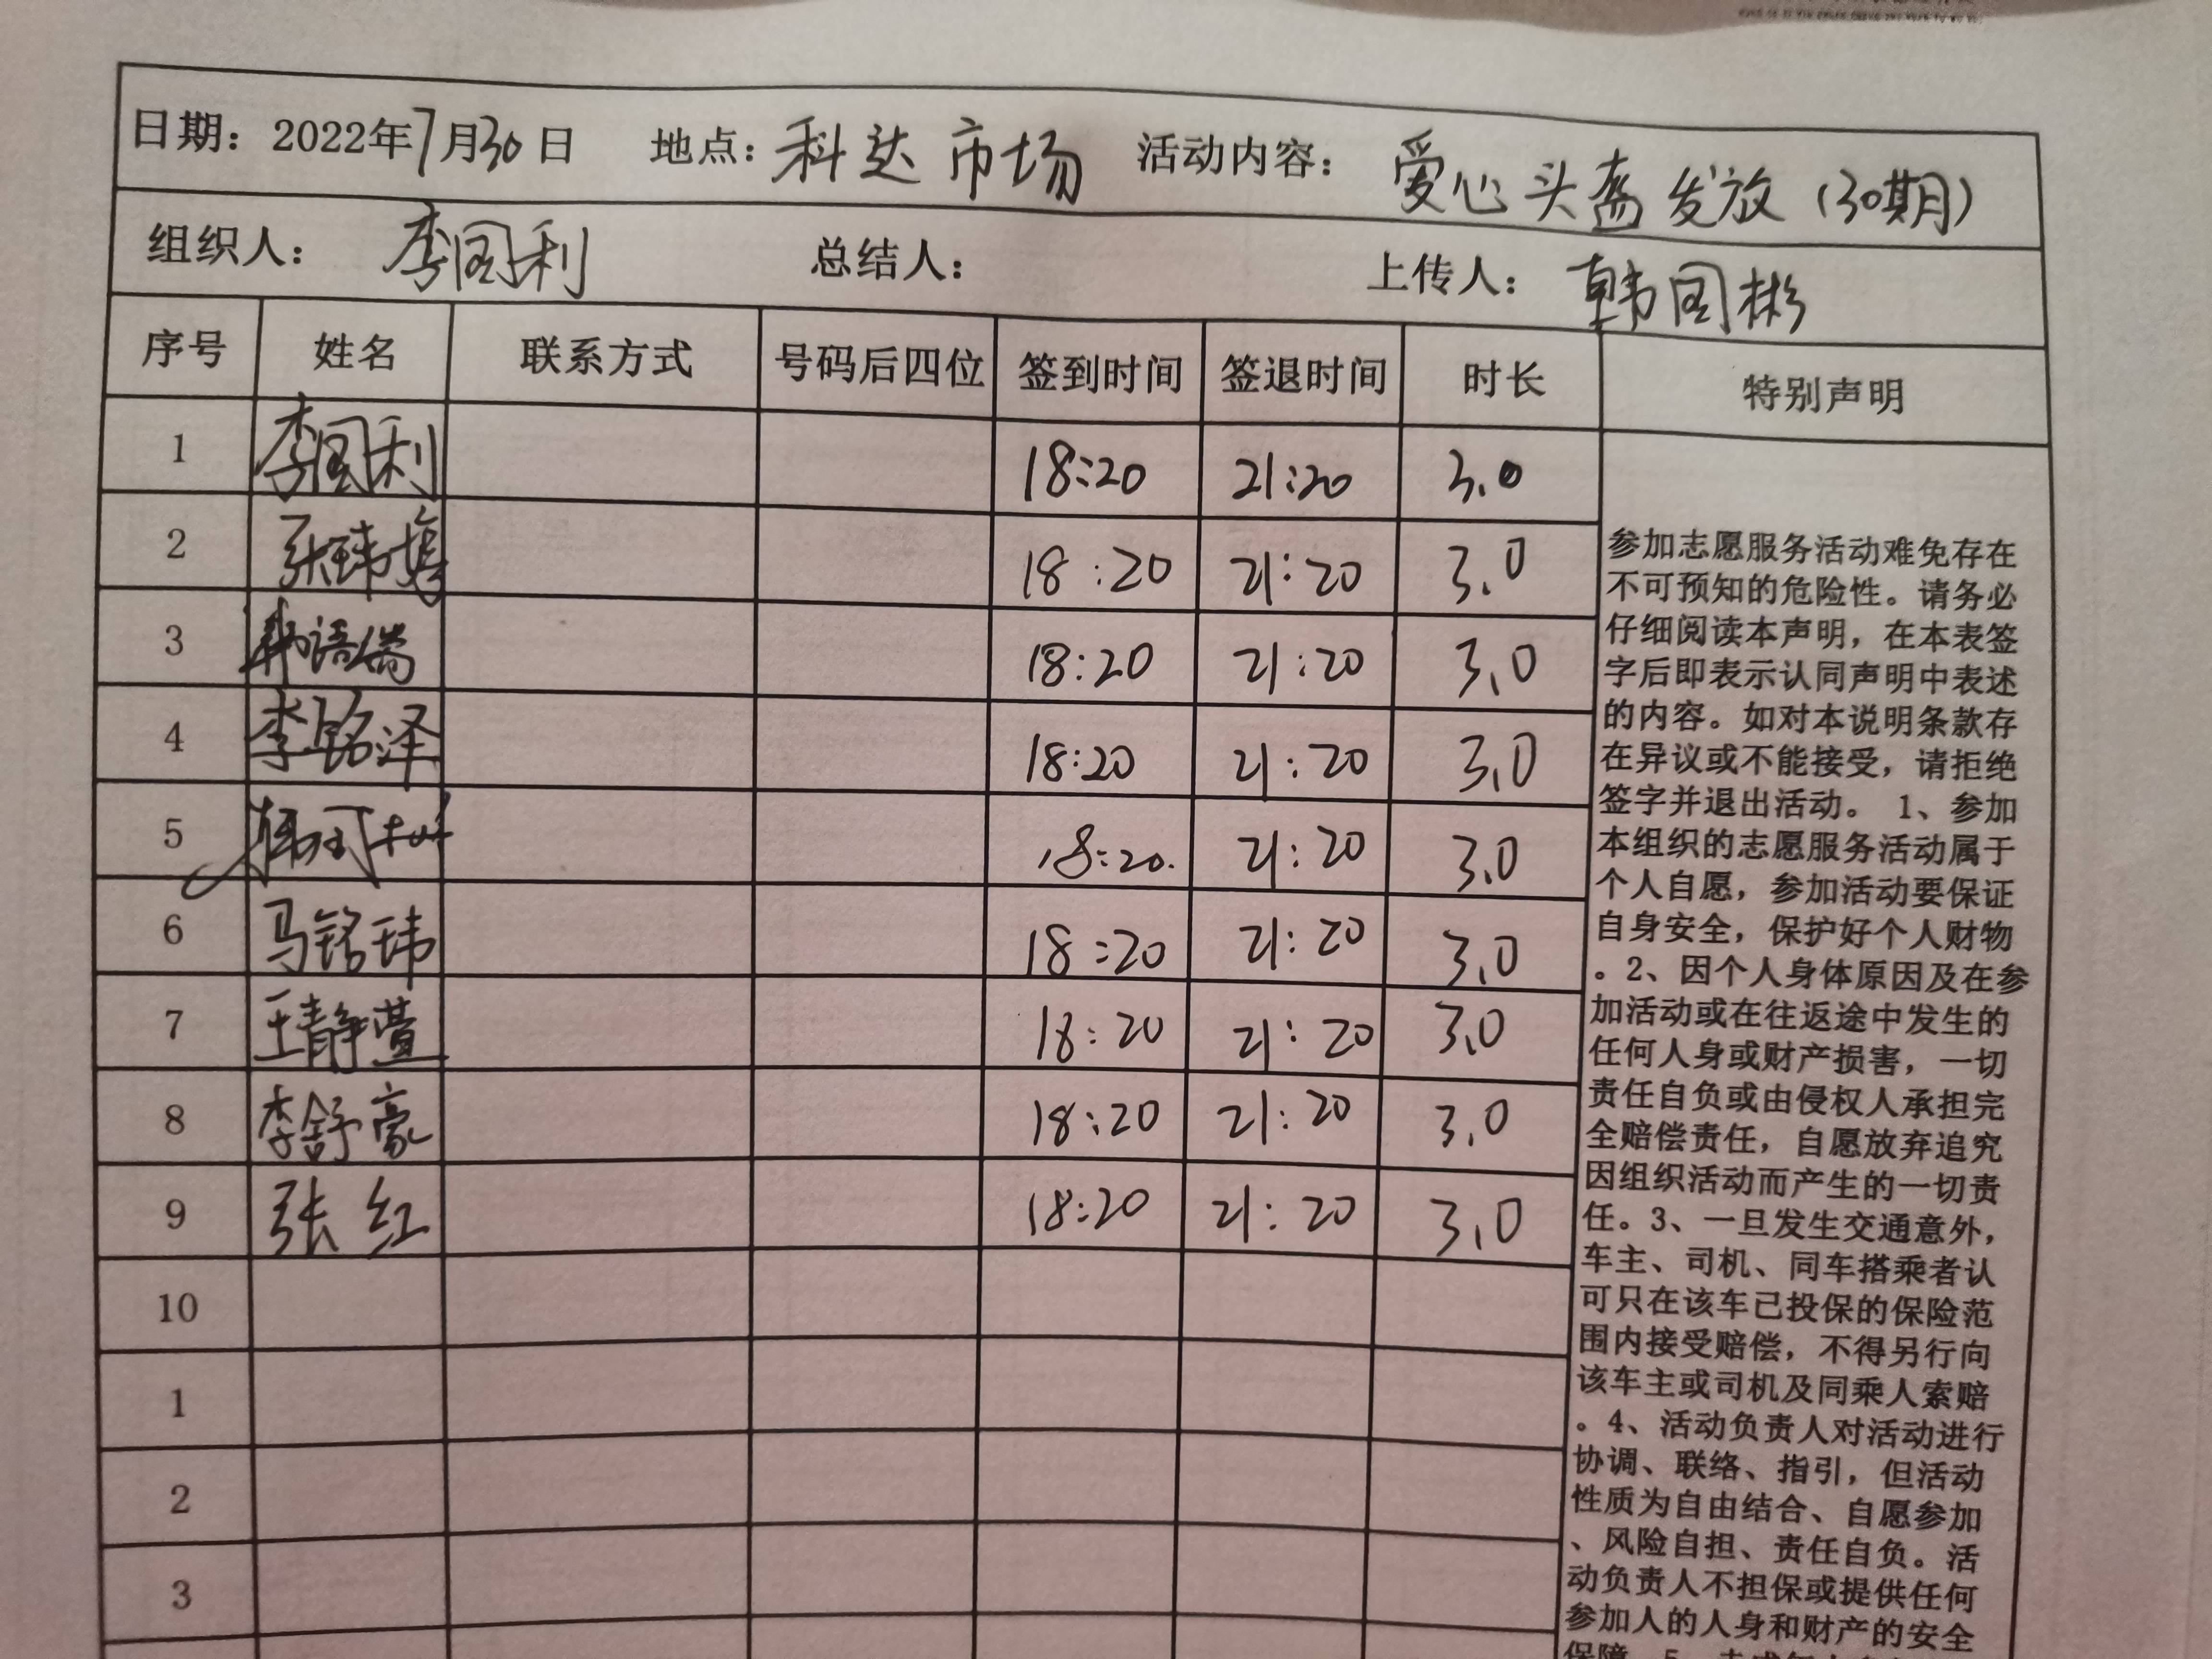 日期：2022年7月30日 地点：科达市场 活动内容：爱心头盔发放（30期）
组织人：李国利 总结人： 上传人：韩国彬
序号 姓名 联系方式 号码后四位 签到时间 签退时间 时长 特别声明
1 李国利 18:20 21:20 3.0
2 张玮 18:20 21:20 3.0
3 韩语 18:20 21:20 3.0
4 李铭泽 18:20 21:20 3.0
5 韩国彬 18:20. 21:20 3.0
6 马铭玮 18:20 21:20 3.0
7 王静萱 18:20 21:20 3.0
8 李舒豪 18:20 21:20 3.0
9 张红 18:20 21:20 3.0
10
1
2
3
参加志愿服务活动难免存在
不可预知的危险性。请务必
仔细阅读本声明，在本表签
字后即表示认同声明中表述
的内容。如对本说明条款存
在异议或不能接受，请拒绝
签字并退出活动。 1、参加
本组织的志愿服务活动属于
个人自愿，参加活动要保证
自身安全，保护好个人财物
。2、因个人身体原因及在参
加活动或在往返途中发生的
任何人身或财产损害，一切
责任自负或由侵权人承担完
全赔偿责任，自愿放弃追究
因组织活动而产生的一切责
任。3、一旦发生交通意外，
车主、司机、同车搭乘者认
可只在该车已投保的保险范
围内接受赔偿，不得另行向
该车主或司机及同乘人索赔
。4、活动负责人对活动进行
协调、联络、指引，但活动
性质为自由结合、自愿参加
、风险自担、责任自负。活
动负责人不担保或提供任何
参加人的人身和财产的安全